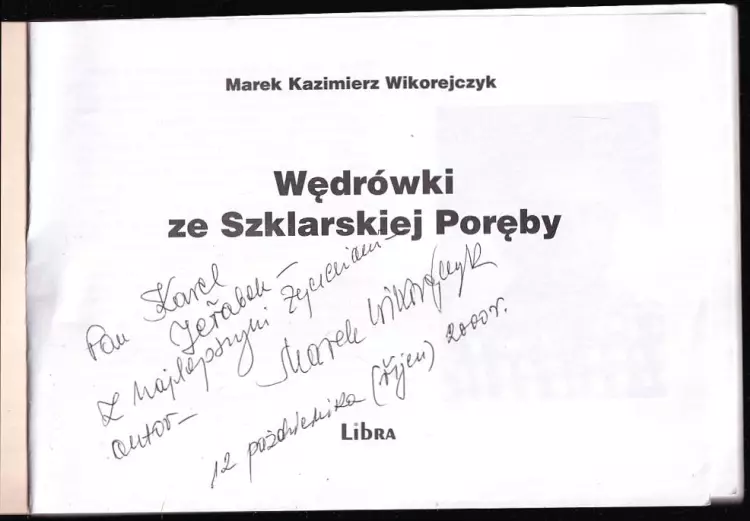 Marek Kazimierz Wikorejczyk
Wędrówki
ze Szklarskiej Poręby
Pan Karel
Jeřábek –
z najlepszymi życzeniami –
autor –
Marek Wikorejczyk
12 października (říjen) 2000r.
LIBRA